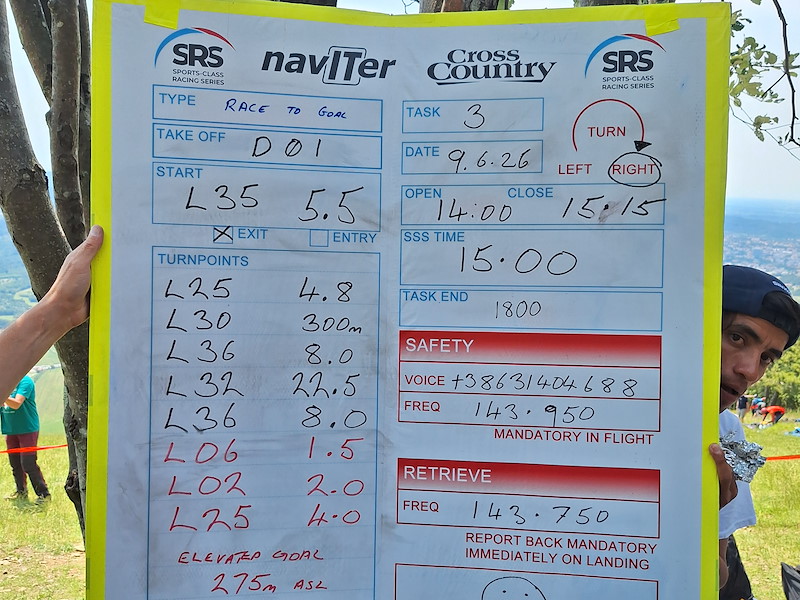 SRS
SPORTS-CLASS
RACING SERIES
navITer
Cross
Country
SRS
SPORTS-CLASS
RACING SERIES
TYPE RACE TO GOAL
TAKE OFF D01
START
L35 5.5
EXIT ENTRY
TURNPOINTS
L25 4.8
L30 300m
L36 8.0
L32 22.5
L36 8.0
L06 1.5
L02 2.0
L25 4.0
ELEVATED GOAL
275m ASL
TASK 3
DATE 9.6.26
TURN
LEFT RIGHT
OPEN CLOSE
14:00 15:15
SSS TIME
15.00
TASK END
1800
SAFETY
VOICE +38631404688
FREQ 143.950
MANDATORY IN FLIGHT
RETRIEVE
FREQ 143.750
REPORT BACK MANDATORY
IMMEDIATELY ON LANDING